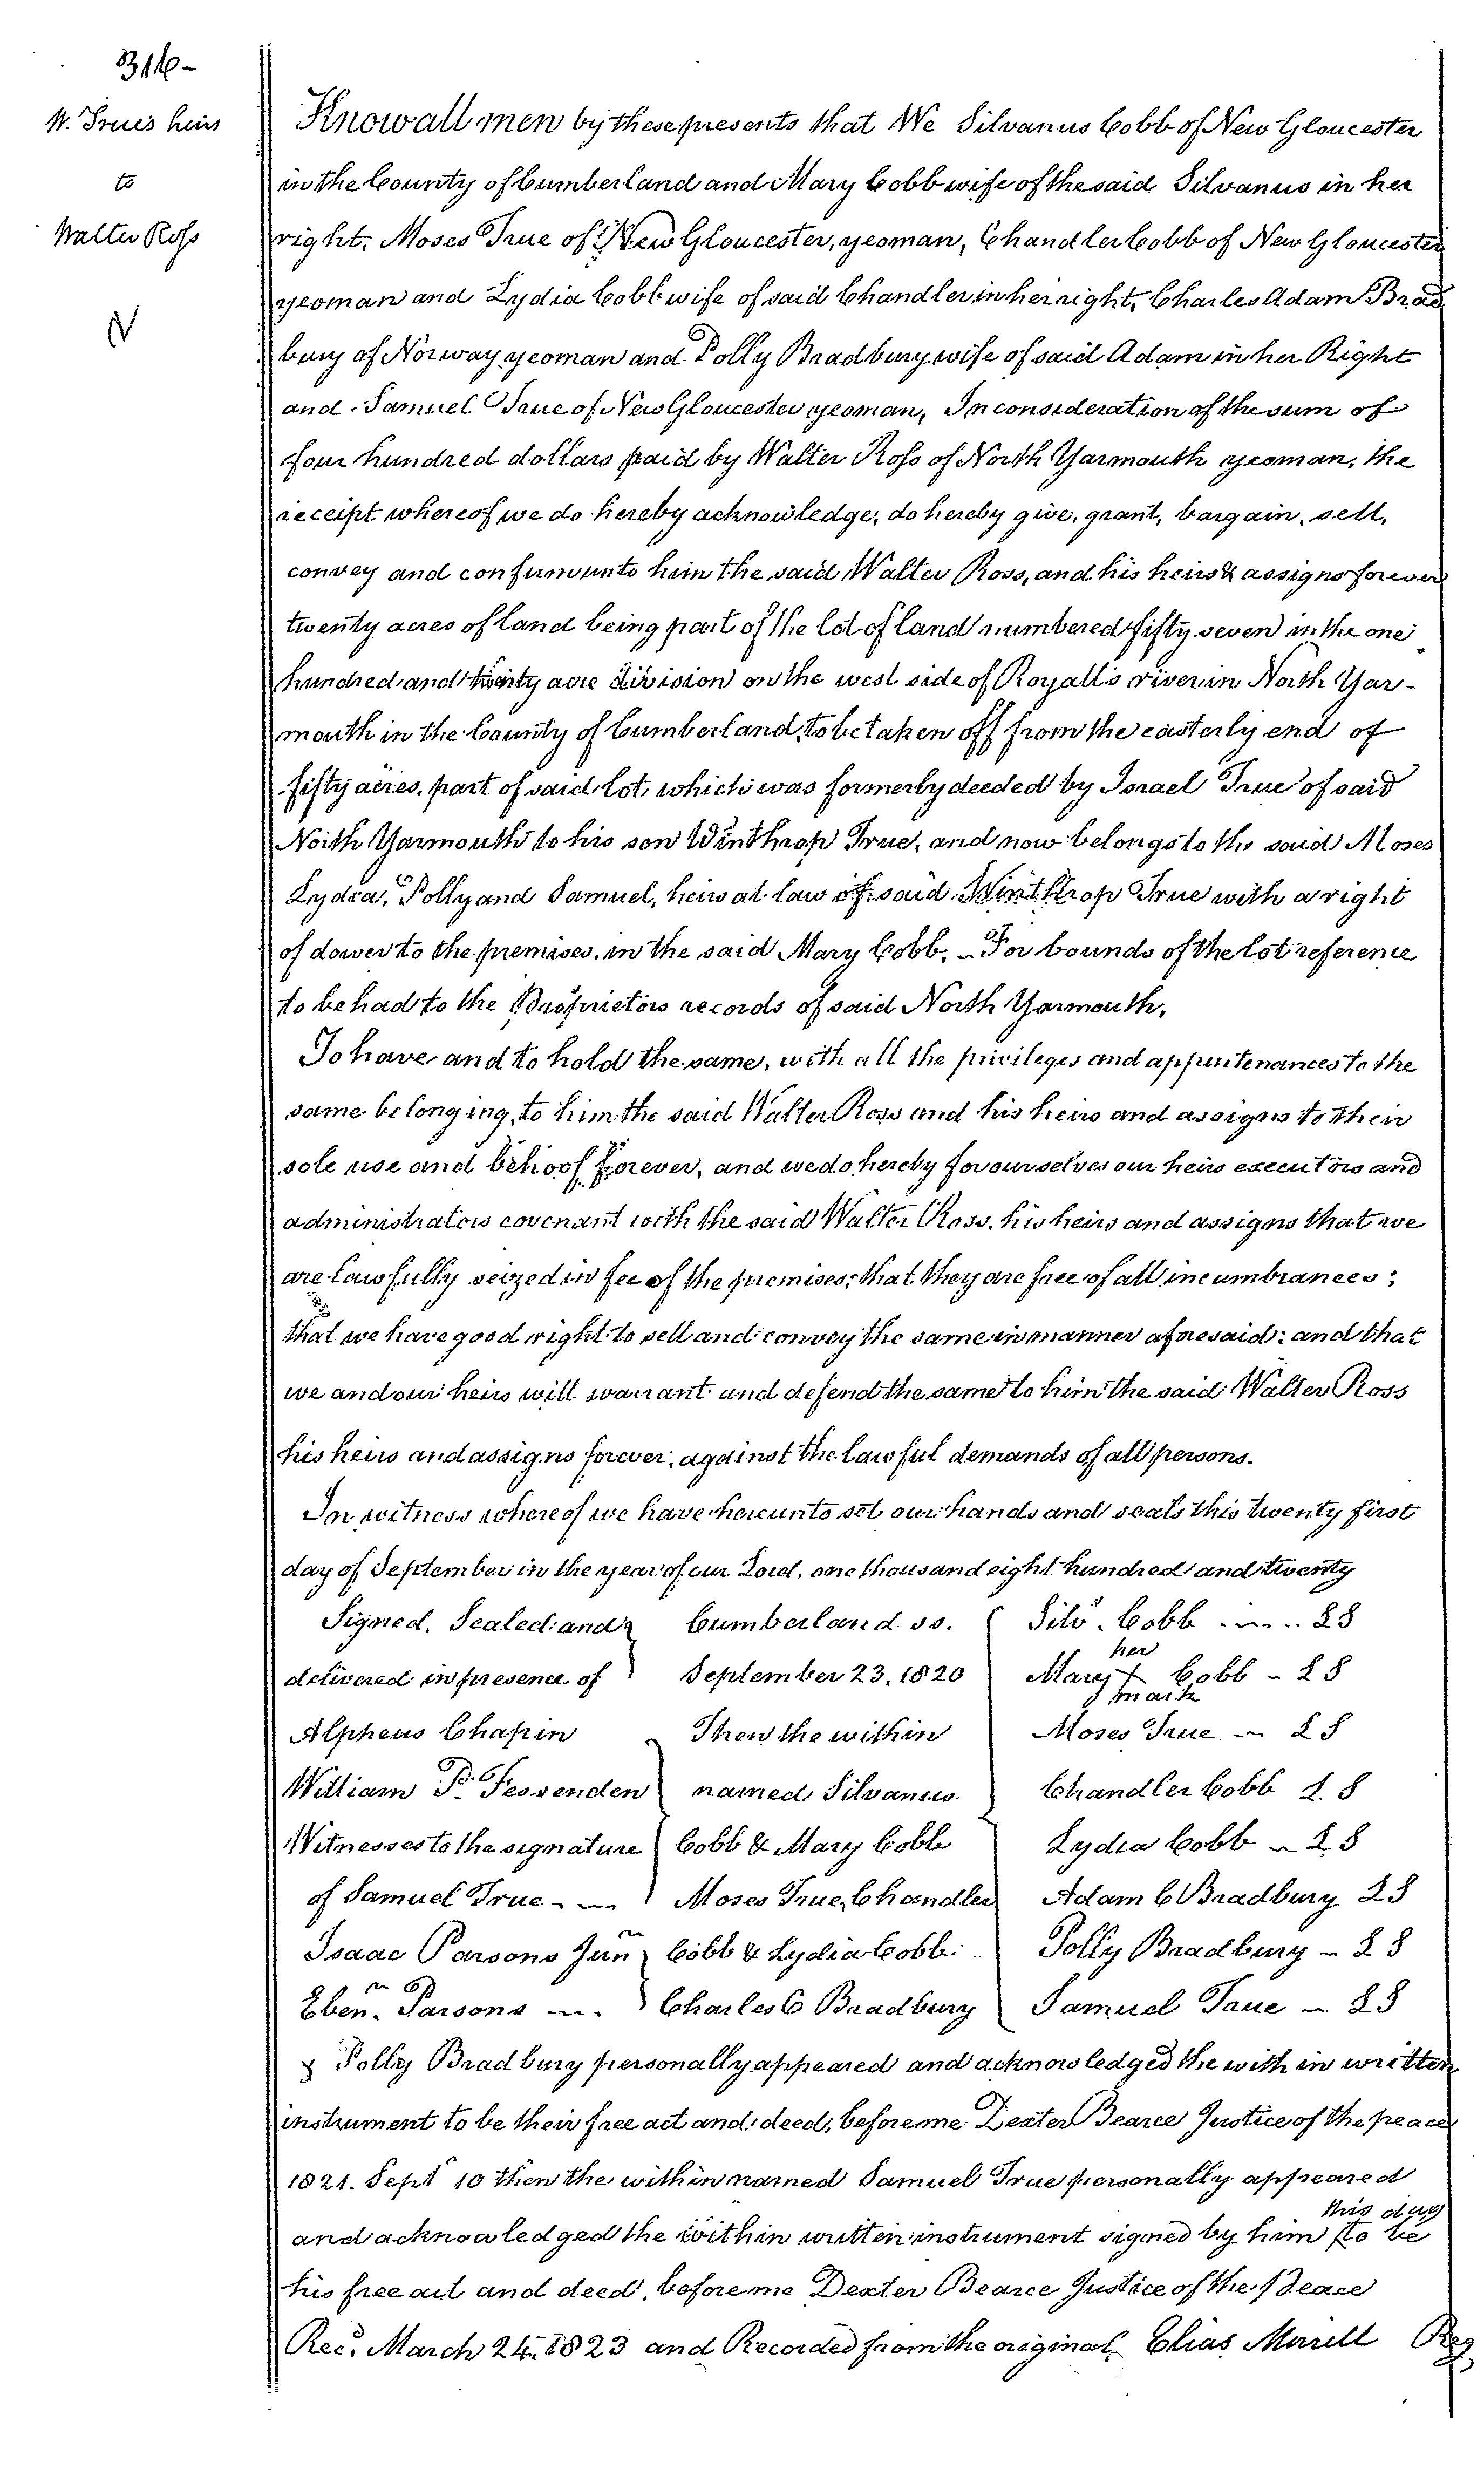 316-
W. True's heirs
to
Walter Ross
N
Know all men by these presents that We Silvanus Cobb of New Gloucester
in the County of Cumberland and Mary Cobb wife of the said Silvanus in her
right, Moses True of New Gloucester, yeoman, Chandler Cobb of New Gloucester
yeoman and Lydia Cobb wife of said Chandler in her right, Charles Adam Brad
bury of Norway yeoman and Polly Bradbury wife of said Adam in her Right
and Samuel True of New Gloucester yeoman, In consideration of the sum of
four hundred dollars paid by Walter Ross of North Yarmouth yeoman, the
receipt whereof we do hereby acknowledge, do hereby give, grant, bargain, sell,
convey and confirm unto him the said Walter Ross, and his heirs & assigns forever
twenty acres of land being part of the lot of land numbered fifty seven in the one
hundred and twenty acre division on the west side of Royall's river in North Yar-
mouth in the County of Cumberland, to be taken off from the easterly end of
fifty acres, part of said lot, which was formerly deeded by Israel True of said
North Yarmouth to his son Winthrop True, and now belongs to the said Moses
Lydia, Polly and Samuel, heirs at law of said Winthrop True with a right
of dower to the premises, in the said Mary Cobb. - For bounds of the lot reference
to be had to the Proprietors records of said North Yarmouth.
To have and to hold the same, with all the privileges and appurtenances to the
same belonging, to him the said Walter Ross and his heirs and assigns to their
sole use and behoof forever, and we do hereby for ourselves our heirs executors and
administrators covenant with the said Walter Ross, his heirs and assigns that we
are lawfully seized in fee of the premises; that they are free of all incumbrances;
that we have good right to sell and convey the same in manner aforesaid; and that
we and our heirs will warrant and defend the same to him the said Walter Ross
his heirs and assigns forever, against the lawful demands of all persons.
In witness whereof we have hereunto set our hands and seals this twenty first
day of September in the year of our Lord, one thousand eight hundred and twenty
Signed, Sealed and Cumberland ss. Silv. Cobb - LS
her
delivered in presence of September 23, 1820 Mary X Cobb - LS
mark
Alpheus Chapin Then the within Moses True - LS
William P. Fessenden named Silvanus Chandler Cobb LS
Witnesses to the signature Cobb & Mary Cobb Lydia Cobb - LS
of Samuel True - Moses True, Chandler Adam C Bradbury LS
Isaac Parsons Jun Cobb & Lydia Cobb Polly Bradbury - LS
Eben. Parsons - Charles C Bradbury Samuel True - LS
& Polly Bradbury personally appeared and acknowledged the with in written
instrument to be their free act and deed, before me Dexter Bearce Justice of the peace
1821. Sept 10 then the within named Samuel True personally appeared
this day
and acknowledged the within written instrument signed by him to be
his free act and deed, before me Dexter Bearce Justice of the Peace
Recd. March 24, 1823 and Recorded from the original, Elias Merrill Reg